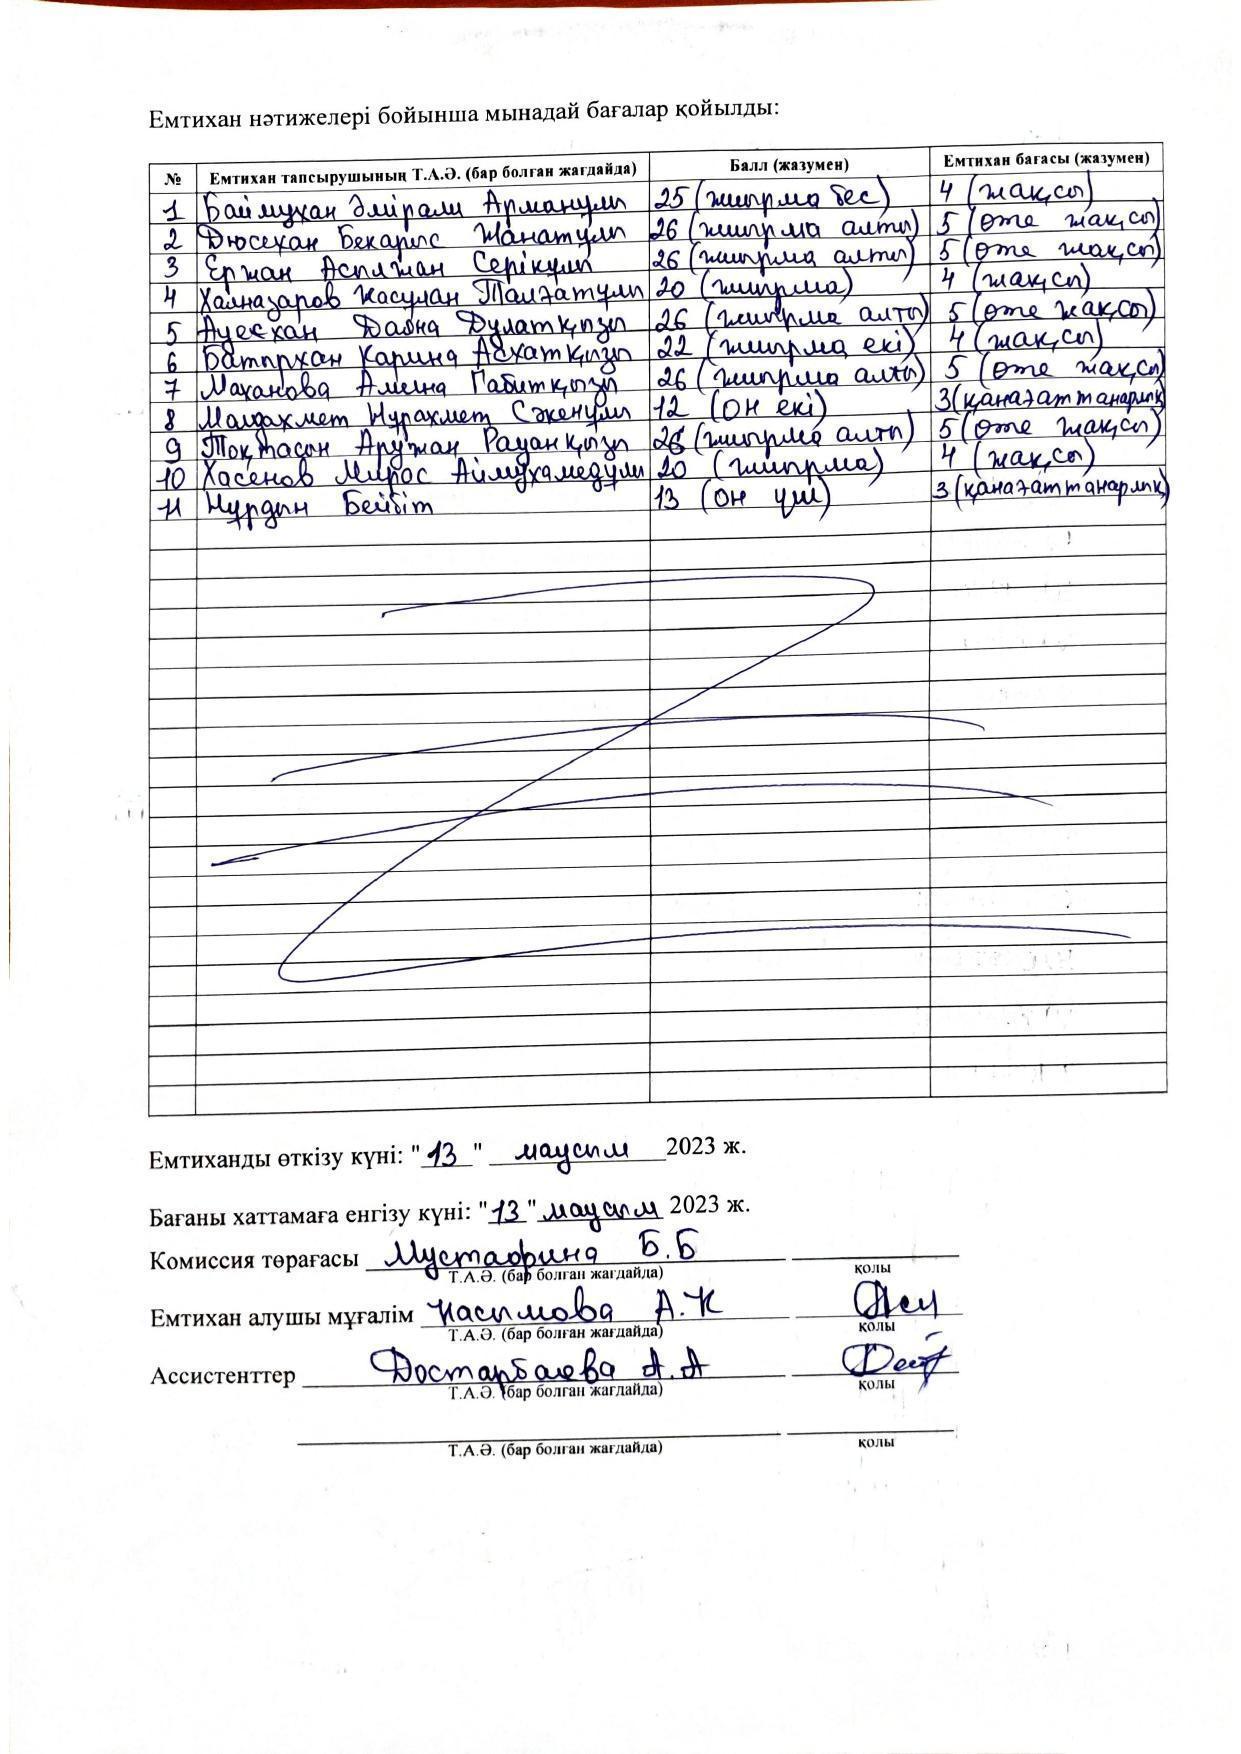 Емтихан нәтижелері бойынша мынадай бағалар қойылды:
№ Емтихан тапсырушының Т.А.Ә. (бар болған жағдайда) Балл (жазумен) Емтихан бағасы (жазумен)
1 Баймұхан Әмірали Арманұлы 25 (жиырма бес) 4 (жақсы)
2 Дюсехан Бекарыс Жанатұлы 26 (жиырма алты) 5 (өте жақсы)
3 Ержан Асылжан Серікұлы 26 (жиырма алты) 5 (өте жақсы)
4 Халназаров Касулан Талғатұлы 20 (жиырма) 4 (жақсы)
5 Ауесхан Даяна Дулатқызы 26 (жиырма алты) 5 (өте жақсы)
6 Батырхан Карина Асхатқызы 22 (жиырма екі) 4 (жақсы)
7 Маханова Амина Ғабитқызы 26 (жиырма алты) 5 (өте жақсы)
8 Малдахмет Нұрахмет Сәкенұлы 12 (он екі) 3 (қанағаттанарлық)
9 Тоқтасын Аружан Рауанқызы 26 (жиырма алты) 5 (өте жақсы)
10 Хасенов Мирас Аймұхамедұлы 20 (жиырма) 4 (жақсы)
11 Нұрдын Бейбіт 13 (он үш) 3 (қанағаттанарлық)
Емтиханды өткізу күні: "13" маусым 2023 ж.
Бағаны хаттамаға енгізу күні: "13" маусым 2023 ж.
Комиссия төрағасы Мустафина Б.Б
Т.А.Ә. (бар болған жағдайда) қолы
Емтихан алушы мұғалім Касымова А.К
Т.А.Ә. (бар болған жағдайда) қолы
Ассистенттер Достарбаева А.А
Т.А.Ә. (бар болған жағдайда) қолы
Т.А.Ә. (бар болған жағдайда) қолы